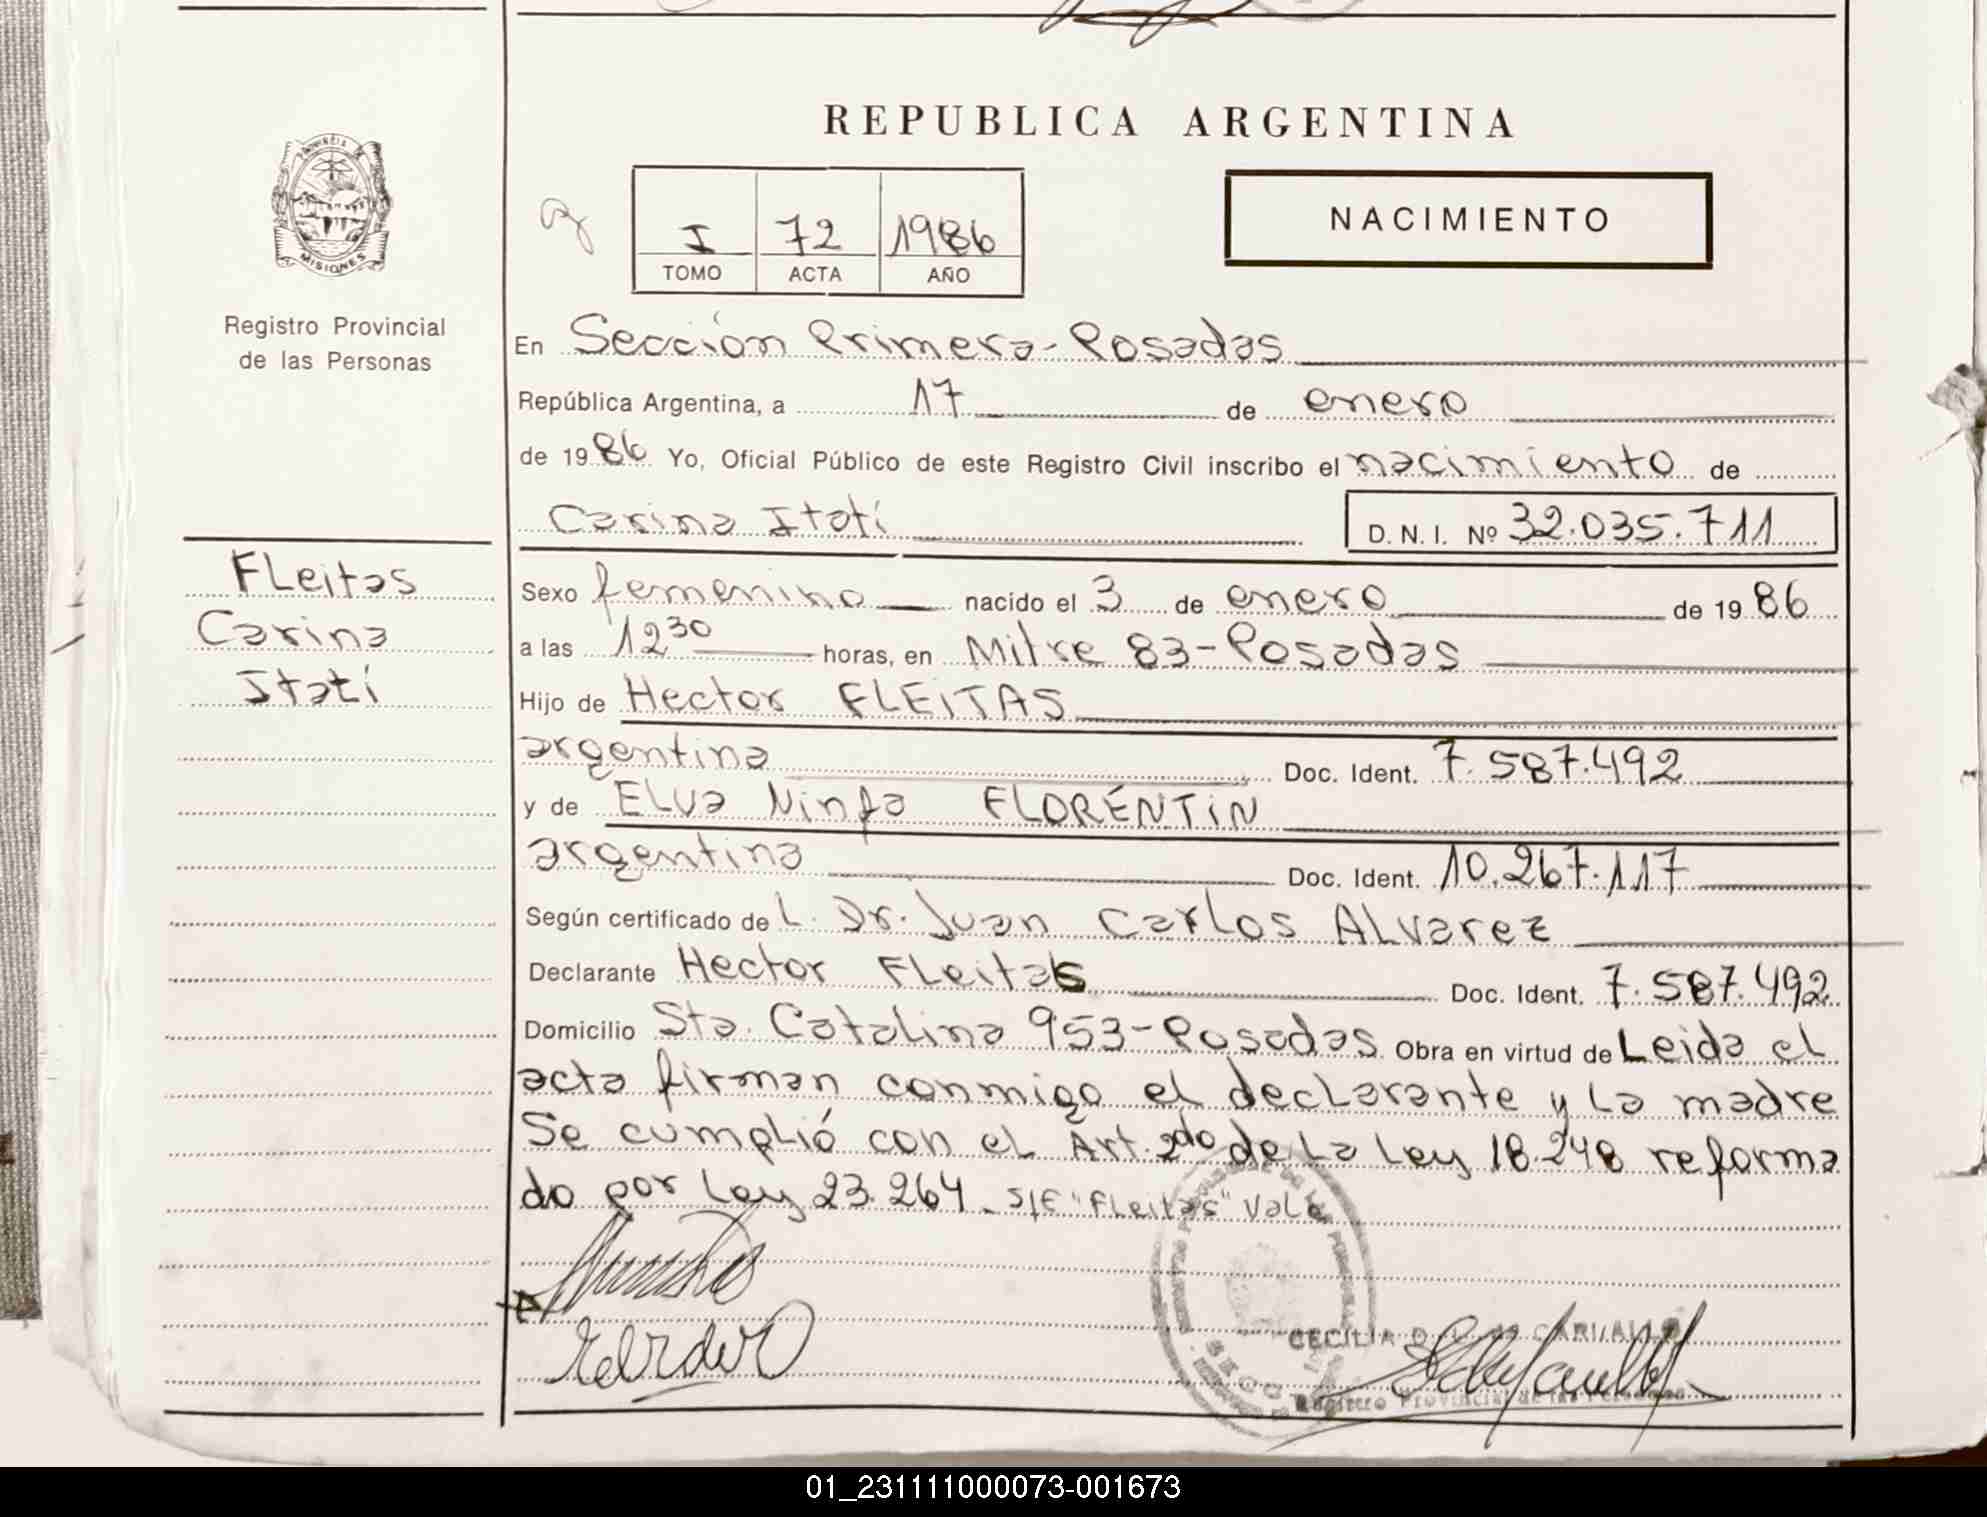 REPUBLICA ARGENTINA
PROVINCIA DE
MISIONES
Registro Provincial
de las Personas
I 72 1986
TOMO ACTA AÑO
NACIMIENTO
En Sección Primera-Posadas
República Argentina, a 17 de enero
de 1986 Yo, Oficial Público de este Registro Civil inscribo el nacimiento de
Carina Itatí D. N. I. Nº 32.035.711
FLeitas
Carina
Itatí
Sexo femenino nacido el 3 de enero de 1986
a las 12 30 horas, en Mitre 83-Posadas
Hijo de Hector FLEITAS
argentina Doc. Ident. 7.587.492
y de ELva Ninfa FLORENTIN
argentina Doc. Ident. 10.267.117
Según certificado de L. Dr. Juan CarLos ALvarez
Declarante Hector FLeitas Doc. Ident. 7.587.492
Domicilio Sta. Catalina 953-Posadas Obra en virtud de Leida el
acta firman conmigo el decLarante y La madre
Se cumpLió con eL Art. 2do de La Ley 18.248 reforma
do por Ley 23.264. S/E "FLeitas" VaLe
CECILIA
Registro Provincial de las Personas
01_231111000073-001673